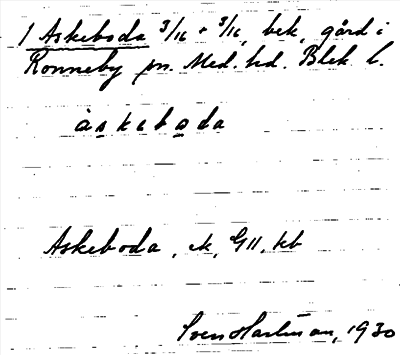 1 Askeboda 3/16 + 3/16, bek. gård i
Ronneby sn. Med. hd. Blek. l.
àskeboda
Askeboda, ek, G11, kb
Sven Hartman, 1930